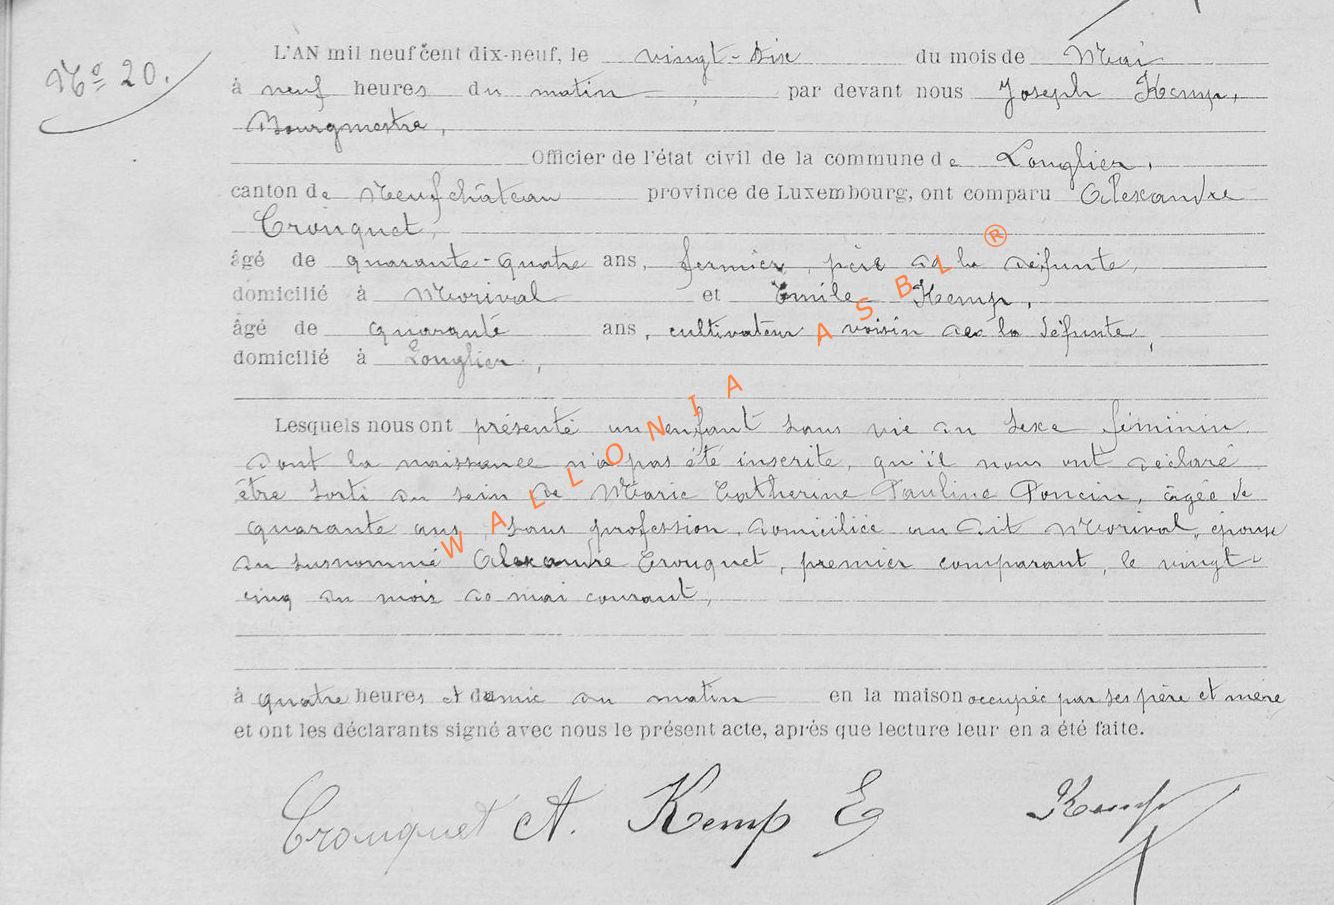 Nº 20.
L'AN mil neuf cent dix-neuf, le vingt-six du mois de Mai
à neuf heures du matin, par devant nous Joseph Kemp,
Bourgmestre,
Officier de l'état civil de la commune de Longlier,
canton de Neufchâteau province de Luxembourg, ont comparu Alexandre
Crouquet,
âgé de quarante-quatre ans, fermier, père de la défunte,
domicilié à Morival et Emile Kemp,
âgé de quarante ans, cultivateur voisin de la défunte,
domicilié à Longlier,
Lesquels nous ont présenté un enfant sans vie du sexe féminin.
dont la naissance n'a pas été inscrite, qu'il nous ont déclaré
être sorti du sein de Marie Catherine Pauline Poncin, âgée de
quarante ans, sans profession, domiciliée au dit Morival, épouse
du susnommé Alexandre Crouquet, premier comparant, le vingt-
cinq du mois de mai courant,
à quatre heures et demie du matin en la maison occupée par ses père et mère
et ont les déclarants signé avec nous le présent acte, après que lecture leur en a été faite.
Crouquet A. Kemp E Kemp
WALLONIA ASBL ®